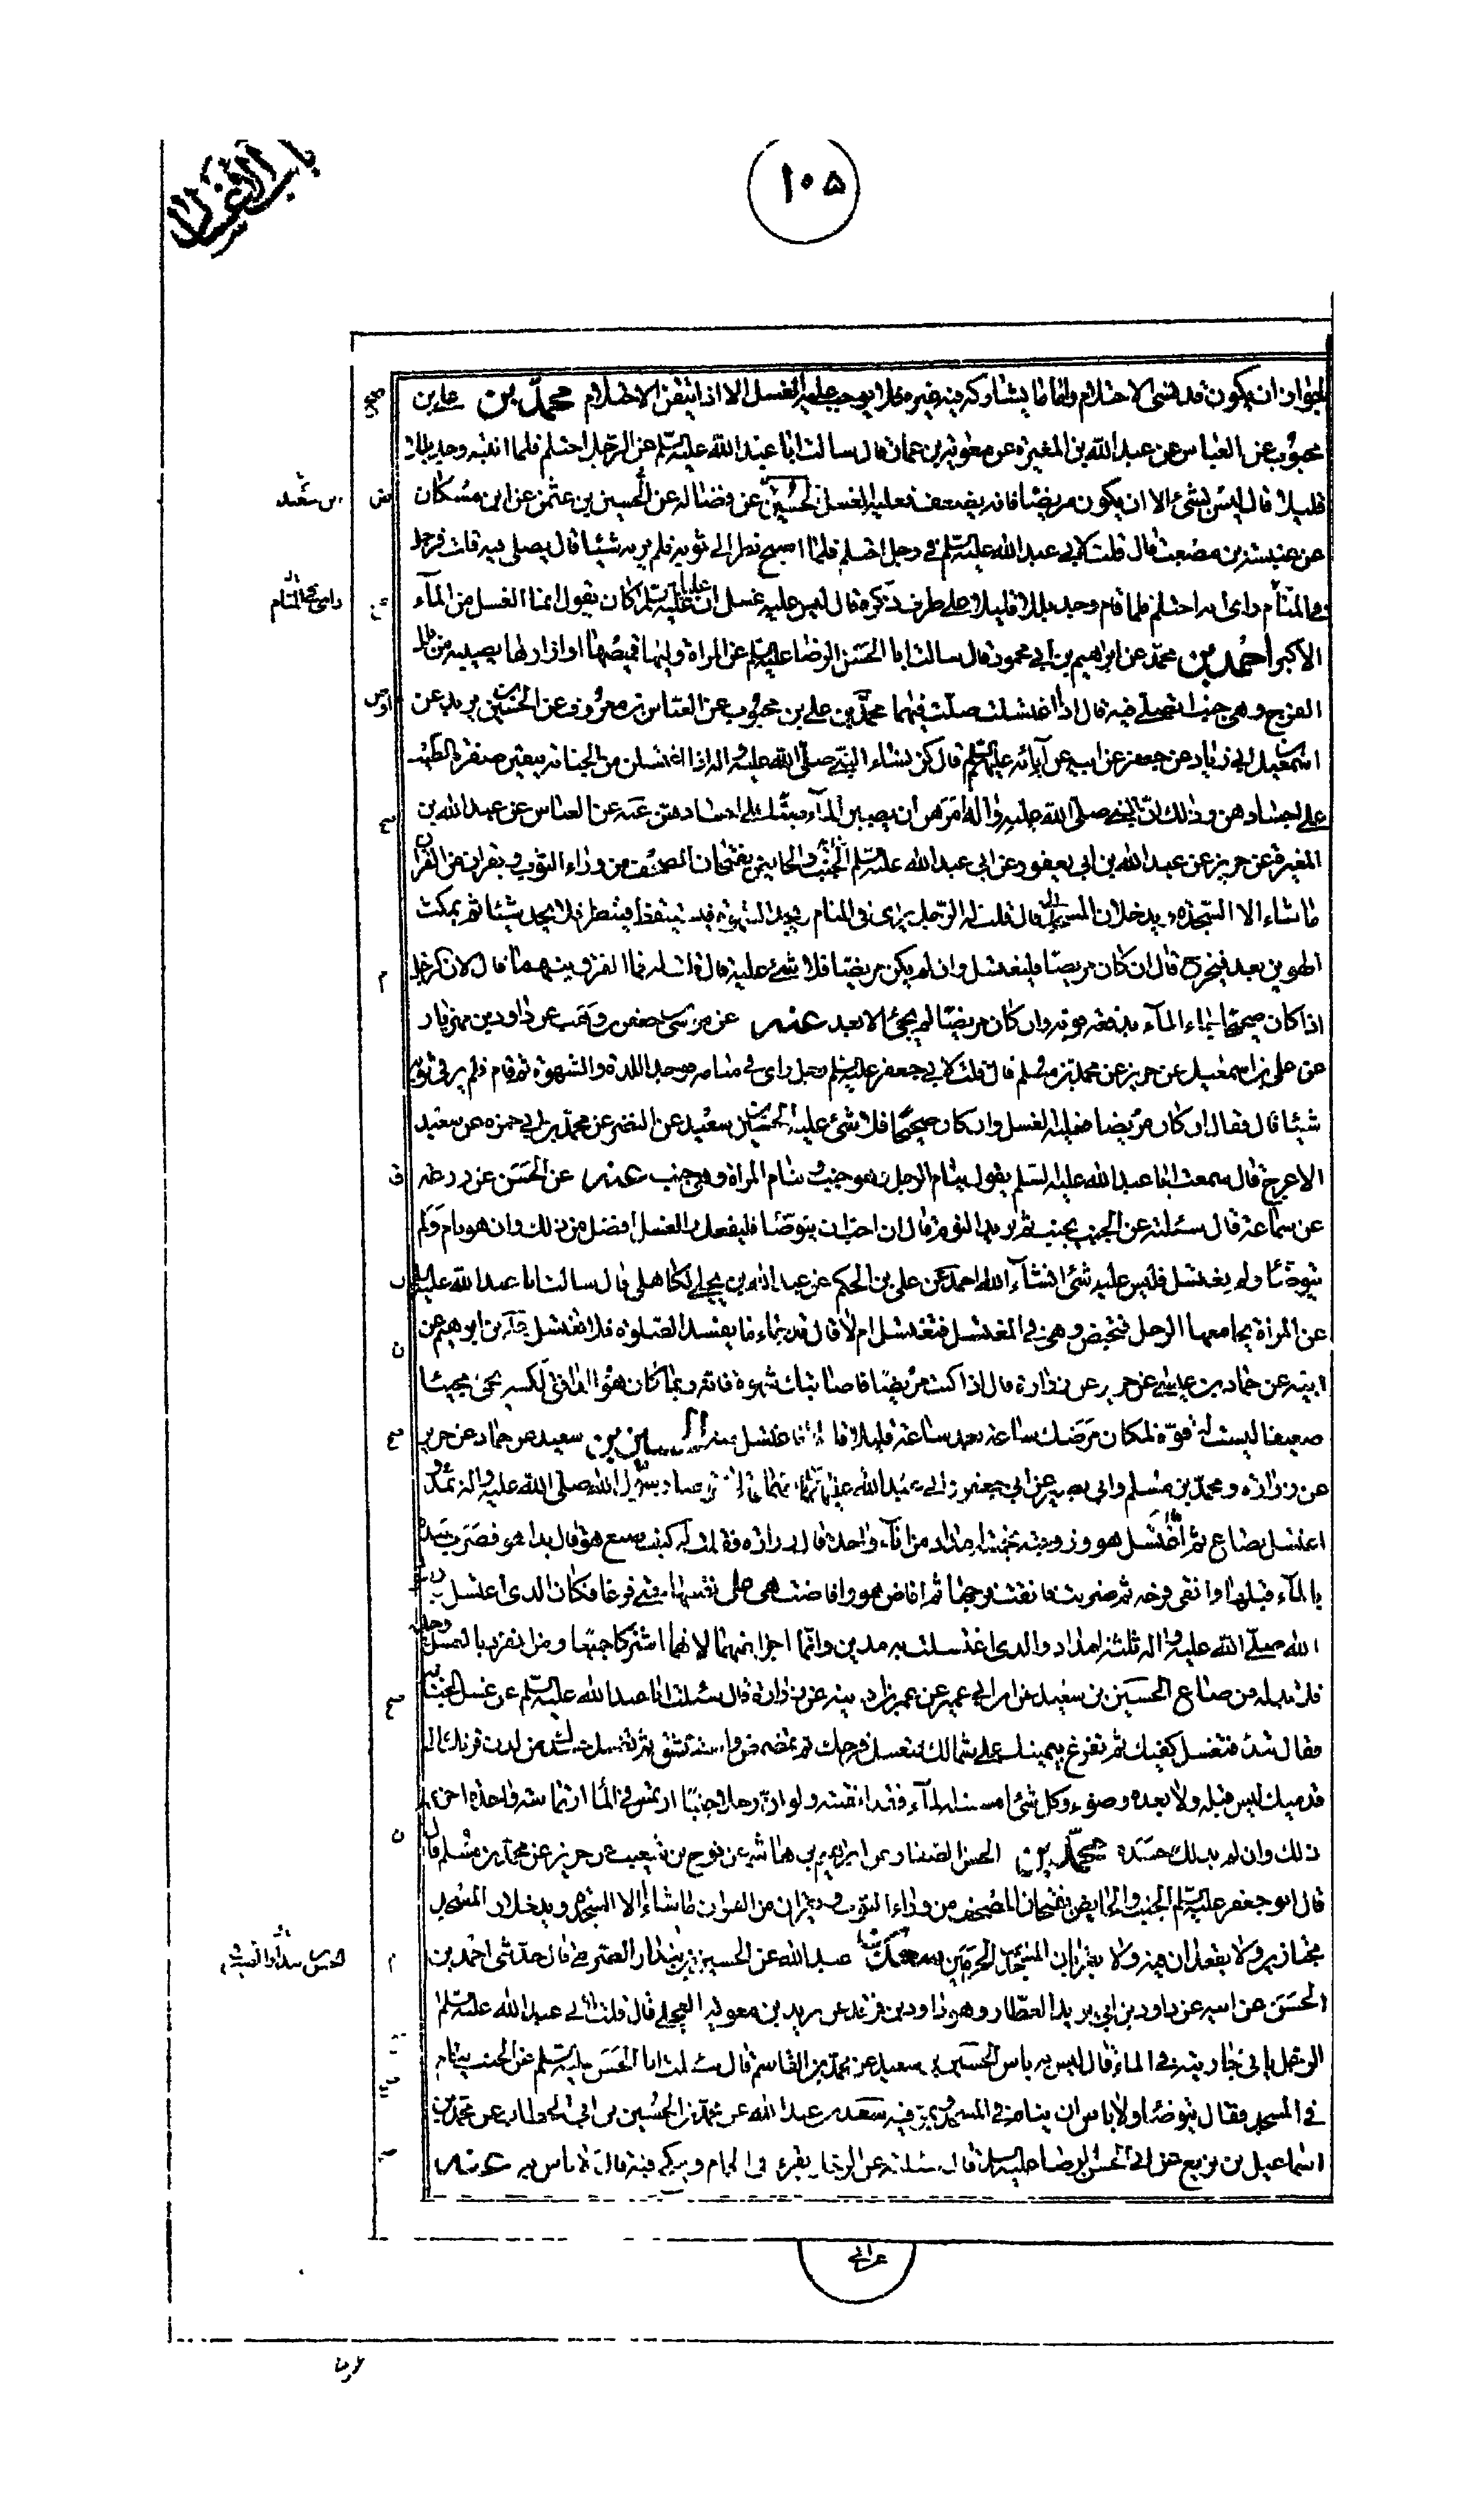 باب الاغسال
١٠٥
لجواز ان يكون قد نسى الاحتلام واما ما يشاركه فيه غيره فلا يوجب عليه الغسل الا اذا تيقن الاحتلام محمد بن علي بن
محبوب عن العباس عن عبد الله بن المغيرة عن معوية بن عمار قال سالت ابا عبد الله عليه السلم عن الرجل احتلم فلما انتبه وجد بللا
قليلا قال ليس بشئ الا ان يكون مريضا فانه يضعف فعليه الغسل الحسين عن فضالة عن الحسين بن عثمن عن ابن مسكان
عن عنبسة بن مصعب قال قلت لابي عبد الله عليه السلم في رجل احتلم فلما اصبح نظر الى ثوبه فلم ير به شيئا قال يصلي فيه قلت فرجل
في المنام راى انه احتلم فلما قام وجد بللا قليلا على طرف ذكره قال ليس عليه غسل ان عليا عليه السلم كان يقول انما الغسل من المآء
الاكبر احمد بن محمد عن ابراهيم بن ابي محمود قال سالت ابا الحسن الرضا عليه السلم عن المراة وليها قميصها او ازارها يصيبه من بلل
الفرج وهي جنب اتصلي فيه قال اذا اغتسلت صلت فيهما محمد بن علي بن محبوب عن العباس بن معروف عن الحسين بن يزيد عن
اسمعيل بن ابي زياد عن جعفر عن ابيه عن آبائه عليهم السلم قال كن نساء النبي صلى الله عليه واله اذا اغتسلن من الجنابة يبقين صفرة الطيب
على اجسادهن وذلك ان النبي صلى الله عليه واله امرهن ان يصببن المآء صبا على اجسادهن عنه عن العباس عن عبد الله بن
المغيرة عن حريز عن عبد الله بن ابي يعفور عن ابي عبد الله عليه السلم
ما شاء الا السجدة ويدخلان المسجد قال قلت له الرجل يرى في المنام ويجد الشهوة فيستيقظ فينظر فلا يجد شيئا ثم يمكث
الهوين بعد فيخرج قال ان كان مريضا فليغتسل وان لم يكن مريضا فلا شئ عليه قال قلت له فما الفرق بينهما قال لان الرجل
اذا كان صحيحا جاء المآء بدفقة قوية وان كان مريضا لم يجئ الا بعد عنه عن موسى بن جعفر بن وهب عن داود بن مهزيار
عن علي بن اسمعيل عن حريز عن محمد بن مسلم قال قلت لابي جعفر عليه السلم رجل راى في منامه فوجد اللذة والشهوة ثم قام فلم ير في ثوبه
شيئا قال فقال ان كان مريضا فعليه الغسل وان كان صحيحا فلا شئ عليه الحسين بن سعيد عن النضر عن محمد بن ابي حمزه عن سعيد
الاعرج قال سمعت ابا عبد الله عليه السلم يقول ينام الرجل وهو جنب وتنام المراة وهي جنب عنه عن الحسن عن زرعة
عن سماعة قال سئلته عن الجنب يجنب ثم يريد النوم قال ان احب ان يتوضا فليفعل والغسل افضل من ذلك وان هو نام ولم
يتوضا ولم يغتسل فليس عليه شئ انشآء الله احمد عن علي بن الحكم عن عبد الله بن يحيى الكاهلي قال سالت ابا عبد الله عليه السلم
عن المراة يجامعها الرجل فتحيض وهي في المغتسل فتغتسل ام لا قال قد جاء ما يفسد الصلوة فلا تغتسل علي بن ابرهيم عن
ابيه عن حماد بن عيسى عن حريز عن زرارة قال اذا كنت مريضا فاصابتك شهوة فانه ربما كان هو الدافق لكنه يجئ مجيئا
ضعيفا ليست له قوة لمكان مرضك ساعة بعد ساعة قليلا قليلا فاغتسل منه الحسين بن سعيد عن حماد عن حريز
عن زرارة ومحمد بن مسلم وابي بصير عن ابي جعفر وابي عبد الله عليهما السلم
اغتسل بصاع ثم اغتسل هو وزوجته بخمسة امداد من انآء واحد قال زرارة فقلت له كيف صنع هو قال بدا هو فضرب بيده
بالمآء قبلها وانقى فرجه ثم ضربت فانقت فرجها ثم افاض هو وافاضت هي على نفسها حتى فرغا فكان الذي اغتسل به
الله صلى الله عليه واله ثلثة امداد والذي اغتسلت به مدين وانما اجزا عنهما لانهما اشتركا جميعا ومن انفرد بالغسل وحده
فلا بد له من صاع الحسين بن سعيد عن ابن ابي عمير عن عمر بن اذينه عن زرارة قال سئلت ابا عبد الله عليه السلم عن غسل الجنابة
فقال تبدء فتغسل كفيك ثم تفرغ بيمينك على شمالك فتغسل فرجك ثم تمضمض واستنشق ثم تغسل جسدك من لدن قرنك الى
قدميك ليس قبله ولا بعده وضوء وكل شئ امسسته المآء فقد انقيته ولو ان رجلا جنبا ارتمس في المآء ارتماسة واحدة اجزاه
ذلك وان لم يدلك جسده محمد بن الحسن الصفار عن ابراهيم بن هاشم عن نوح بن شعيب عن حريز عن محمد بن مسلم قال
قال ابو جعفر عليه السلم الجنب والحايض يفتحان المصحف من وراء الثوب ويقران من القران ما شاءا الا السجدة ويدخلان المسجد
مجتازين ولا يقعدان فيه ولا يقربان المسجدين الحرمين سعد بن عبد الله عن الحسين بن بندار الصرمي قال حدثني احمد بن
الحسن عن ابيه عن داود بن ابي يزيد العطار وهو داود بن فرقد عن بريد بن معوية العجلي قال قلت لابي عبد الله عليه السلم
الرجل ياتي جاريته في الماء قال ليس به باس الحسين بن سعيد عن محمد بن القاسم قال سئلت ابا الحسن عليه السلم عن الجنب ينام
في المسجد فقال يتوضا ولا باس ان ينام في المسجد ويمر فيه سعد بن عبد الله عن محمد بن الحسين بن ابي الخطاب عن محمد بن
اسماعيل بن بزيع عن ابي الحسن الرضا عليه السلم قال سئلته عن الرجل يقرء في الحمام وينكح فيه قال لا باس به عنه
عن ابي
بن سعيد
راى في المنام